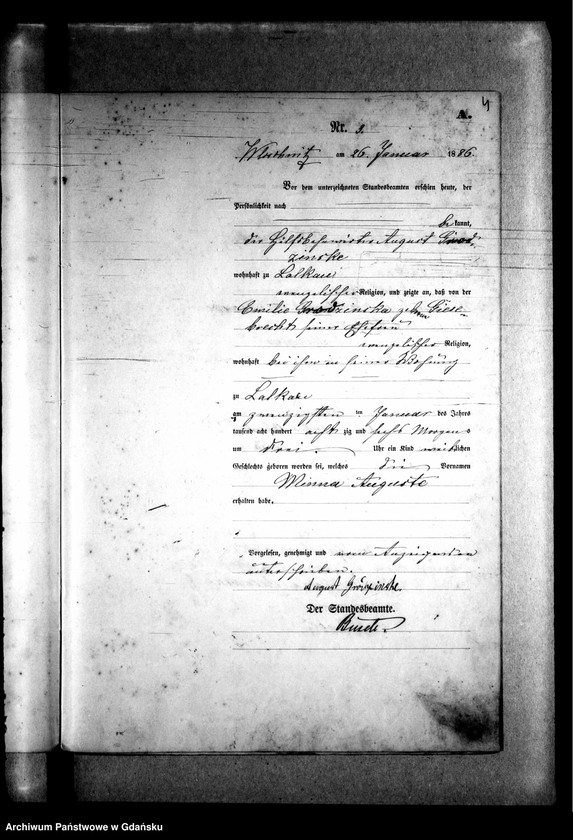 4
A.
Nr. 3.
am 26. Januar 1886.
Vor dem unterzeichneten Standesbeamten erschien heute, der
Persönlichkeit nach
bekannt,
der August Grod-
zinske
wohnhaft zu Lalkau
evangelischer Religion, und zeigte an, daß von der
Emilie Grodzinska geborne Giese-
brecht seiner Ehefrau
evangelischer Religion,
wohnhaft bei ihm in seiner Wohnung
zu Lalkau
am zwanzigsten ten Januar des Jahres
tausend acht hundert acht zig und sechs Morgens
um drei Uhr ein Kind weiblichen
Geschlechts geboren worden sei, welches die Vornamen
Minna Auguste
erhalten habe.
Vorgelesen, genehmigt und vom Anzeigenden
unterschrieben.
August Grodzinske.
Der Standesbeamte.
Archiwum Państwowe w Gdańsku